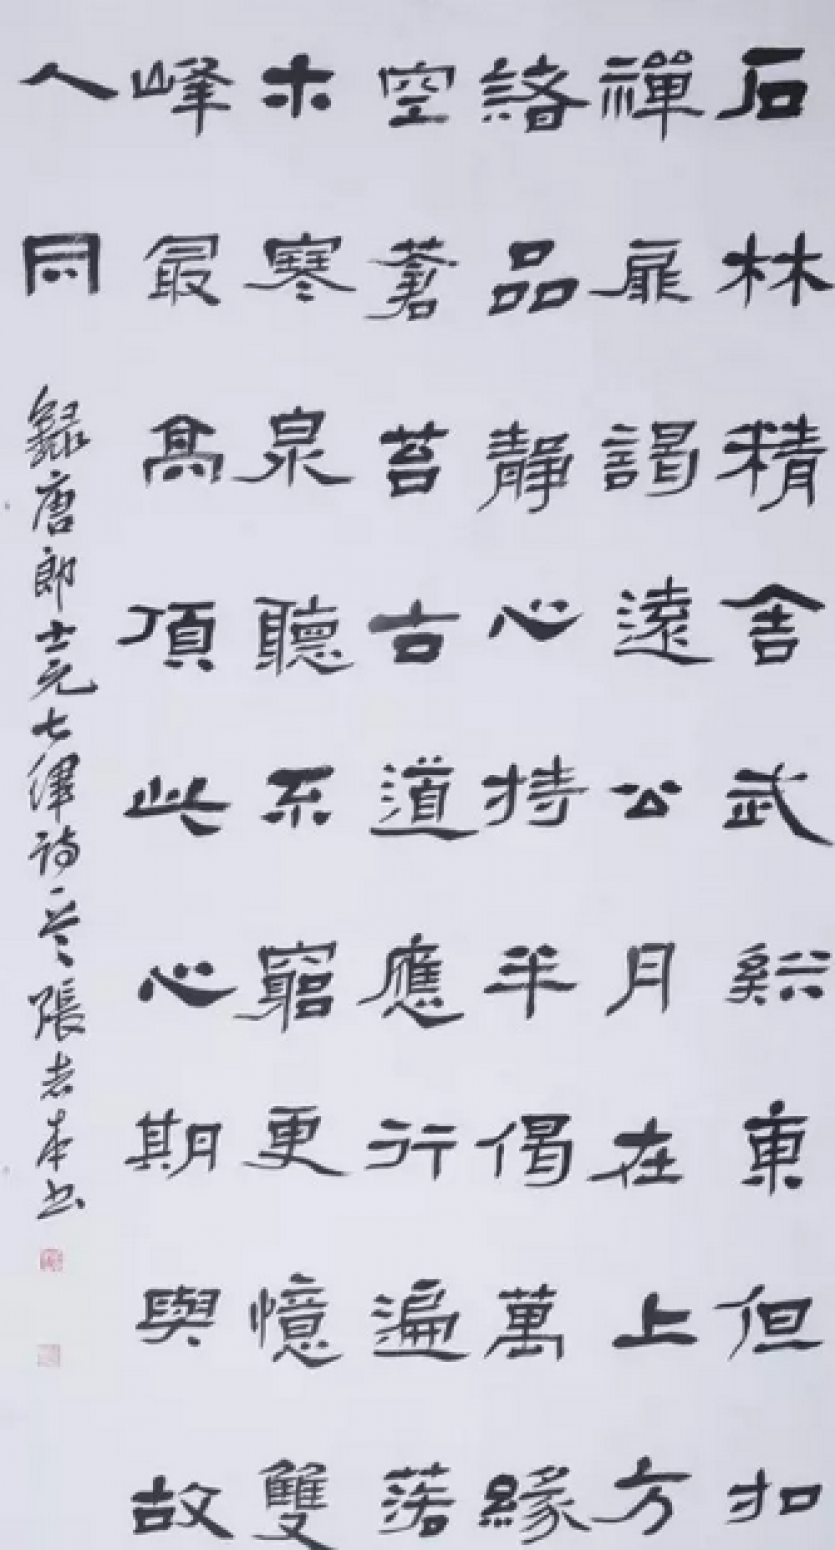 石林精舍武谿東但扣
禪扉謁遠公月在上方
諸品靜心持半偈萬緣
空蒼苔古道應行遍落
木寒泉聽不窮更憶雙
峰最高頂此心期與故
人同
錄唐郎士元七律詩一首張本书